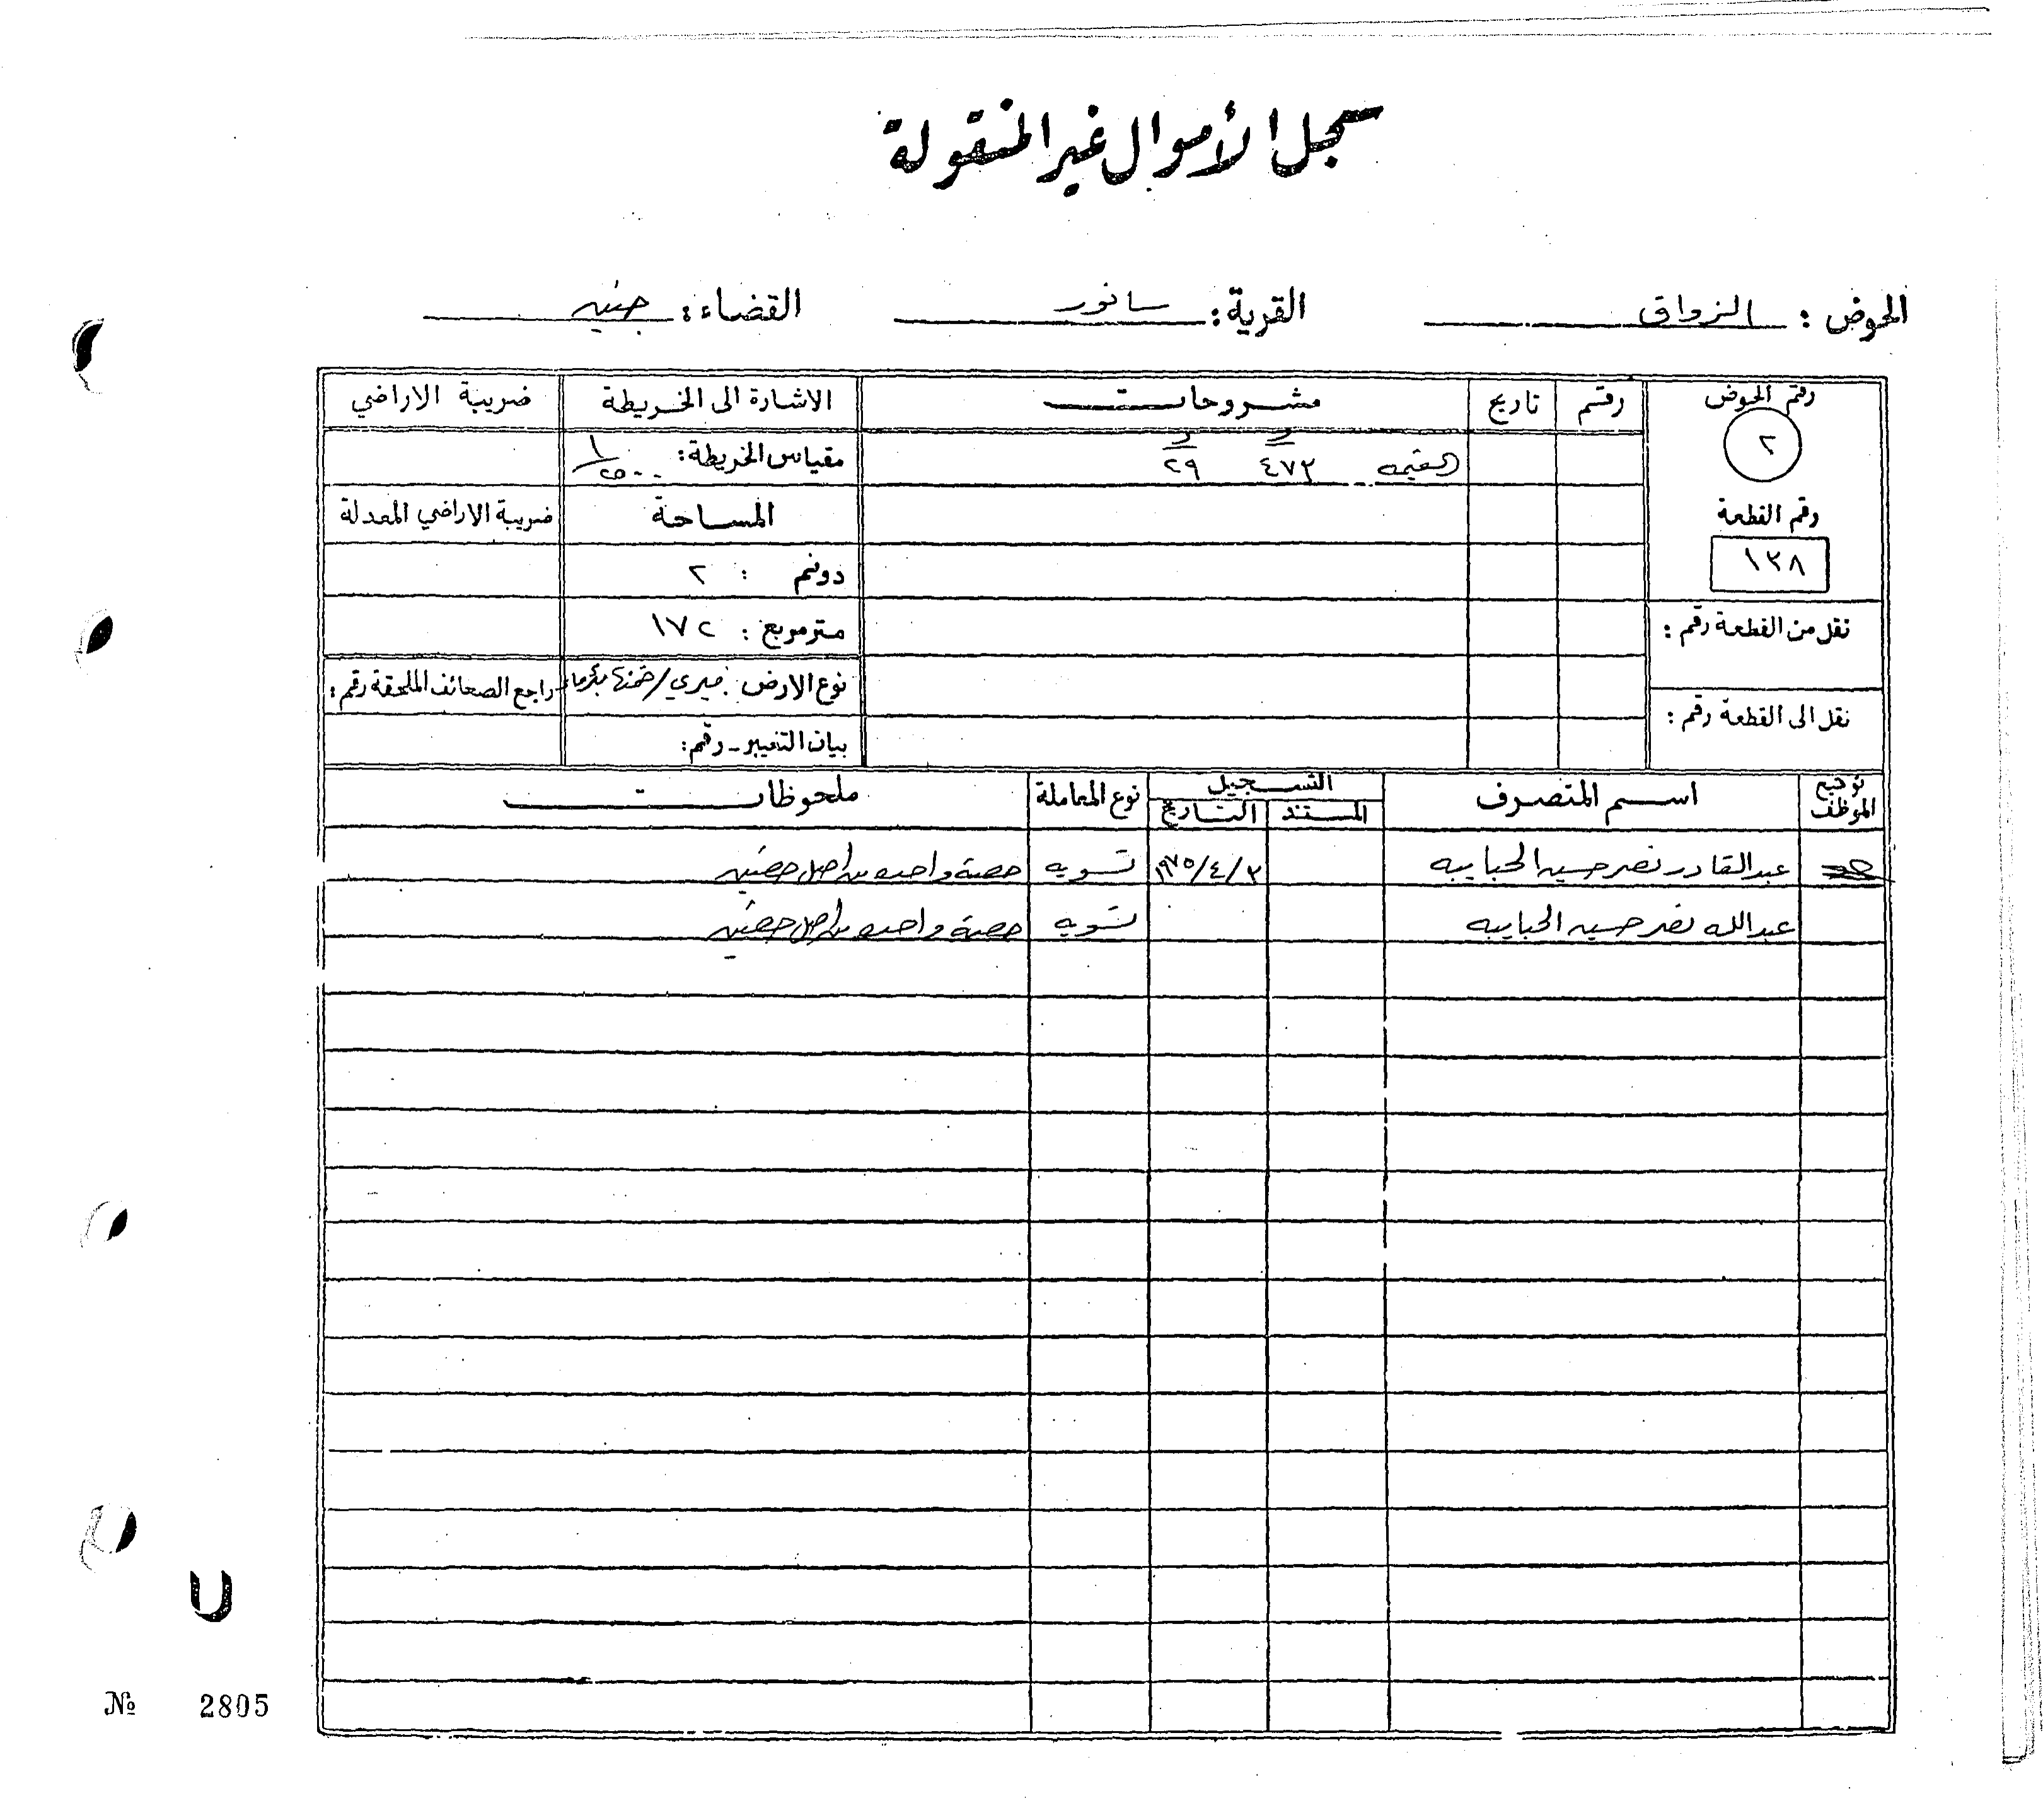 سجل الأموال غير المنقولة
الحوض : الزواق القرية : سانور القضاء : جنين
رقم الحوض رقم تاريخ مشروحات الاشارة الى الخريطة ضريبة الاراضي
٢ القيمه ٤٧٣ ٢٩ مقياس الخريطة : ١/٢٥٠٠
رقم القطعة المساحة ضريبة الاراضي المعدلة
١٣٨ دونم : ٢
نقل من القطعة رقم : متر مربع : ١٧٢
نوع الارض : ميري / راجع الصحائف الملحقة رقم :
نقل الى القطعة رقم : بيان التغيير - رقم :
توقيع الموظف اسم المتصرف التسجيل نوع المعاملة ملحوظات
المستند التاريخ
عبدالقادر نصر حسين الحبايبه ٣/٤/١٩٧٥ تسويه حصة واحده من اصل حصتين
عبدالله نصر حسين الحبايبه تسويه حصة واحده من اصل حصتين
U
№ 2805